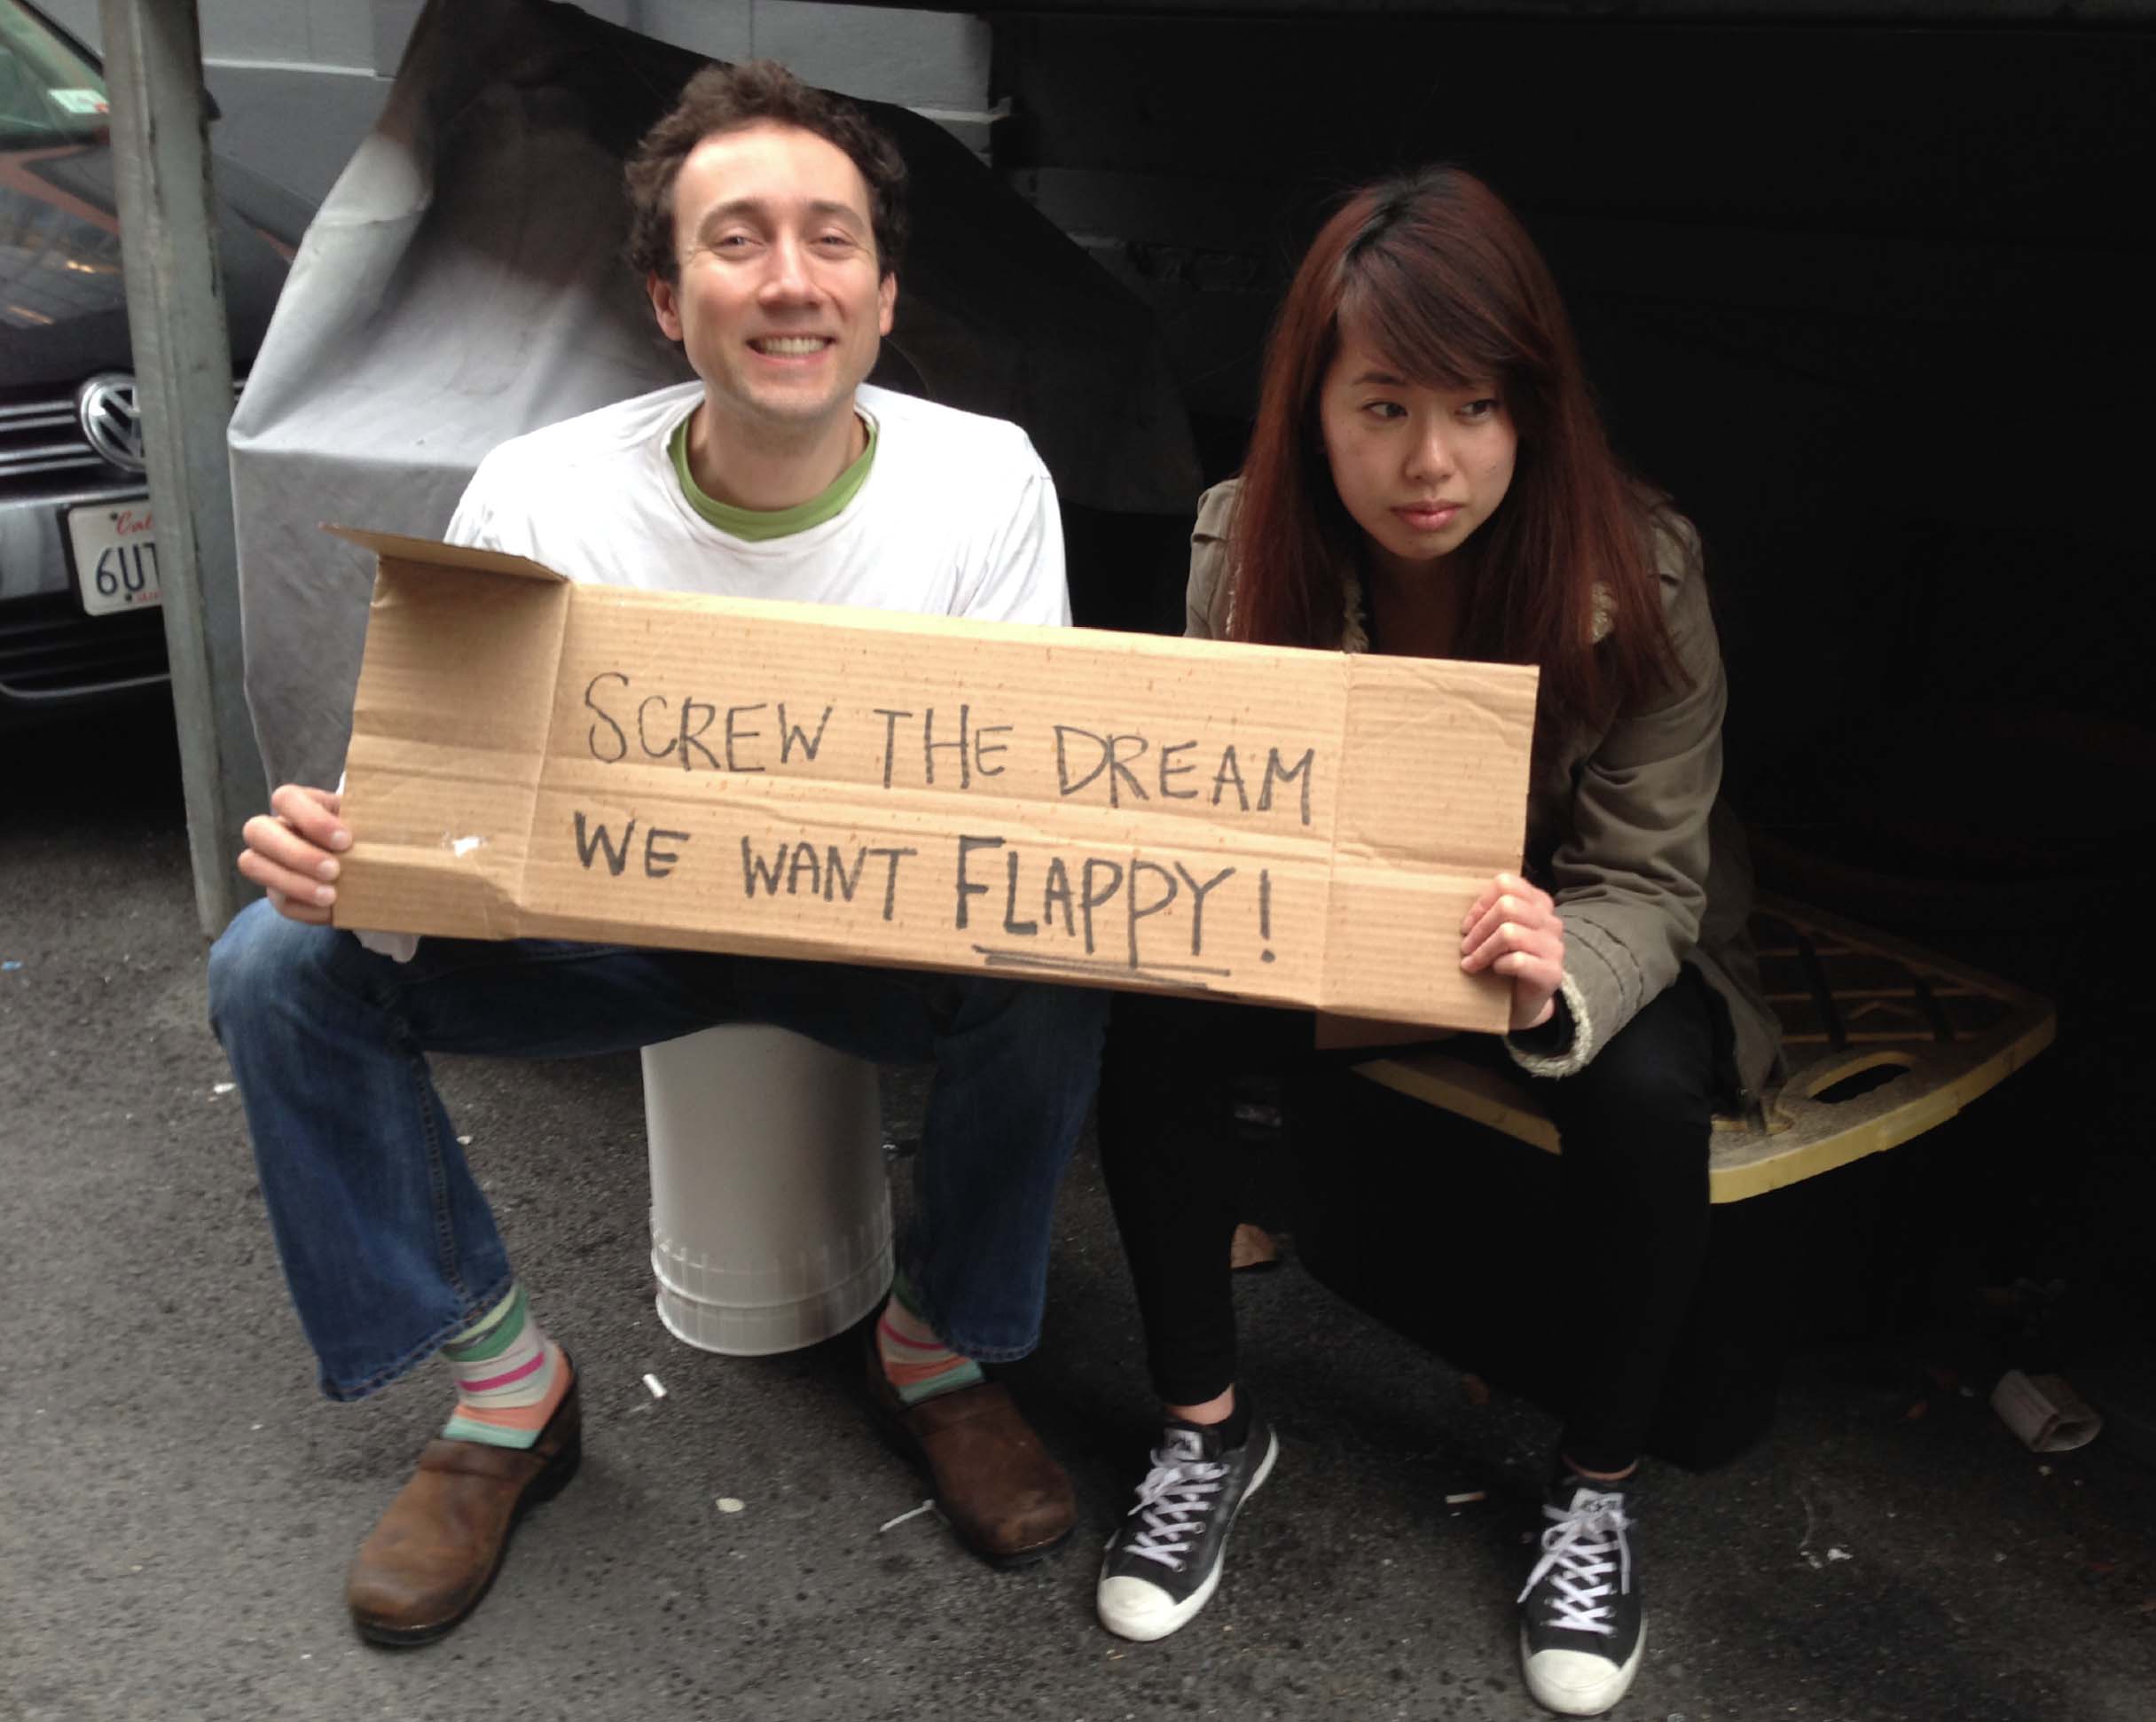 Cal
6U
SCREW THE DREAM
WE WANT FLAPPY!